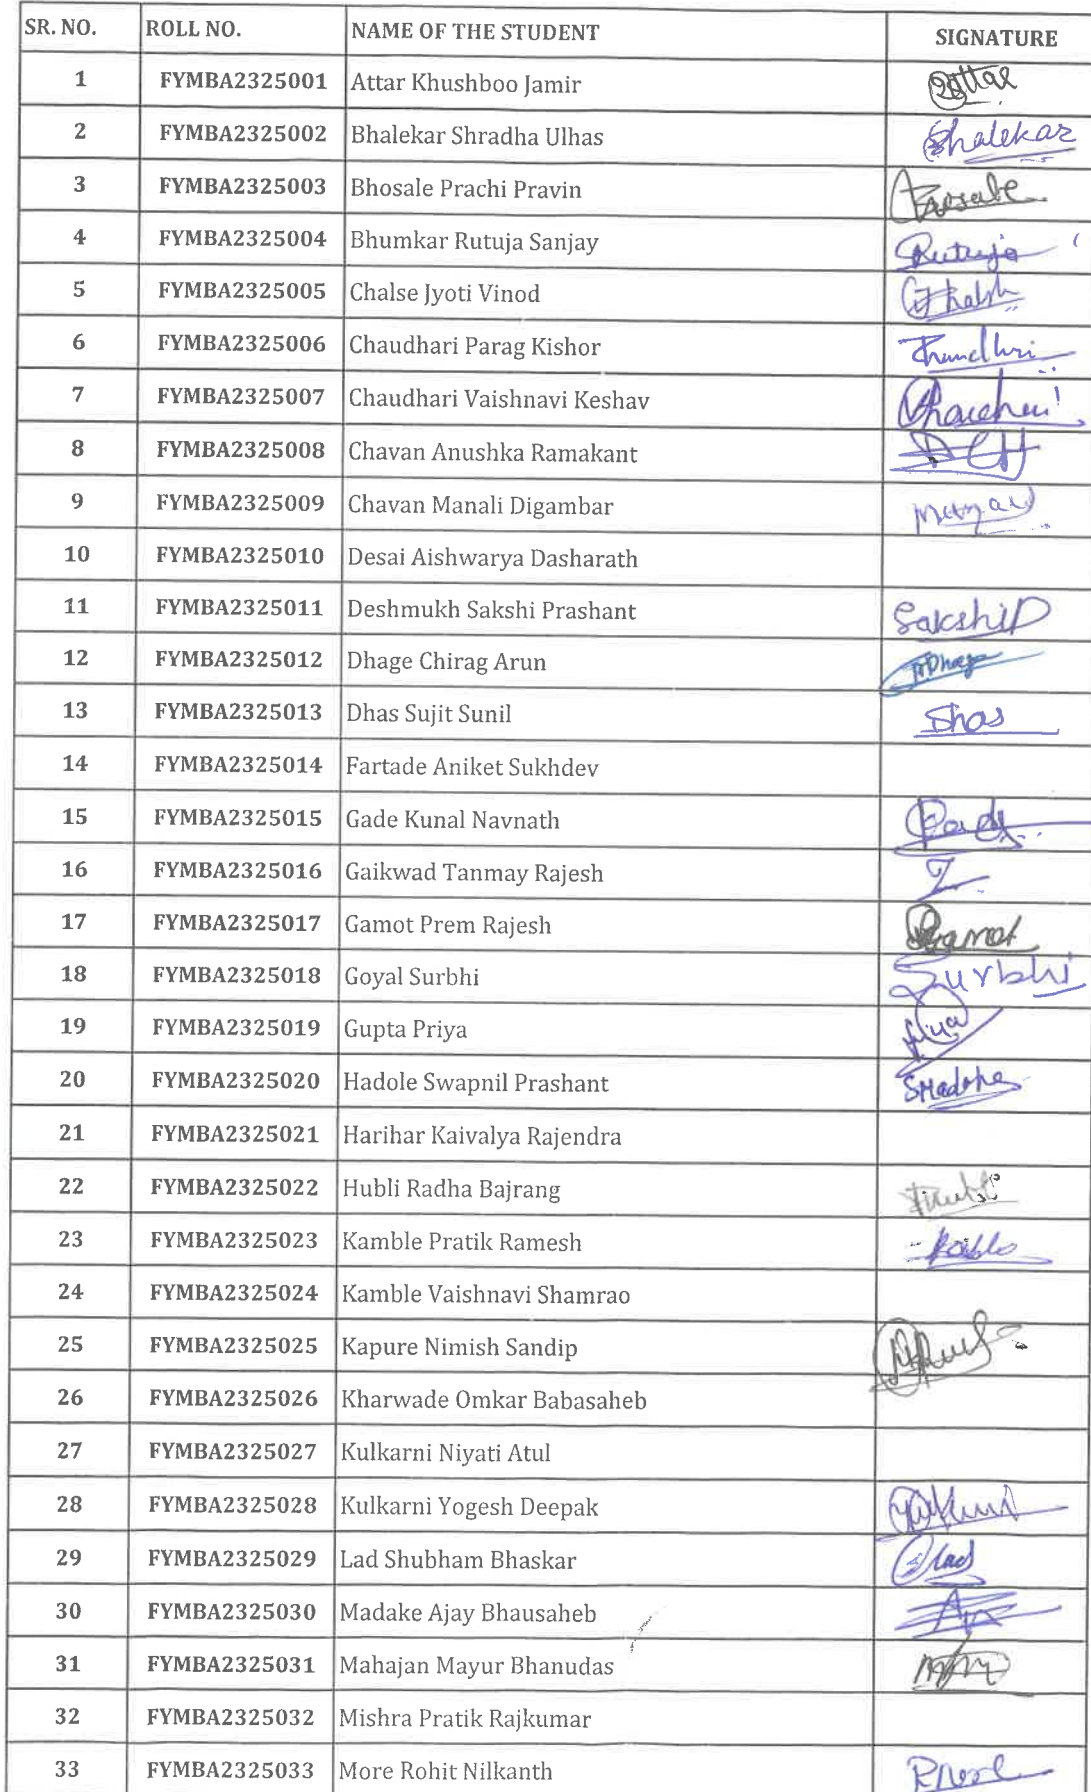 SR. NO. ROLL NO. NAME OF THE STUDENT SIGNATURE
1 FYMBA2325001 Attar Khushboo Jamir Attar
2 FYMBA2325002 Bhalekar Shradha Ulhas Bhalekar
3 FYMBA2325003 Bhosale Prachi Pravin
4 FYMBA2325004 Bhumkar Rutuja Sanjay Rutuja
5 FYMBA2325005 Chalse Jyoti Vinod
6 FYMBA2325006 Chaudhari Parag Kishor
7 FYMBA2325007 Chaudhari Vaishnavi Keshav
8 FYMBA2325008 Chavan Anushka Ramakant
9 FYMBA2325009 Chavan Manali Digambar
10 FYMBA2325010 Desai Aishwarya Dasharath
11 FYMBA2325011 Deshmukh Sakshi Prashant SakshiD
12 FYMBA2325012 Dhage Chirag Arun
13 FYMBA2325013 Dhas Sujit Sunil Dhas
14 FYMBA2325014 Fartade Aniket Sukhdev
15 FYMBA2325015 Gade Kunal Navnath
16 FYMBA2325016 Gaikwad Tanmay Rajesh
17 FYMBA2325017 Gamot Prem Rajesh
18 FYMBA2325018 Goyal Surbhi Surbhi
19 FYMBA2325019 Gupta Priya
20 FYMBA2325020 Hadole Swapnil Prashant
21 FYMBA2325021 Harihar Kaivalya Rajendra
22 FYMBA2325022 Hubli Radha Bajrang
23 FYMBA2325023 Kamble Pratik Ramesh
24 FYMBA2325024 Kamble Vaishnavi Shamrao
25 FYMBA2325025 Kapure Nimish Sandip
26 FYMBA2325026 Kharwade Omkar Babasaheb
27 FYMBA2325027 Kulkarni Niyati Atul
28 FYMBA2325028 Kulkarni Yogesh Deepak
29 FYMBA2325029 Lad Shubham Bhaskar
30 FYMBA2325030 Madake Ajay Bhausaheb
31 FYMBA2325031 Mahajan Mayur Bhanudas
32 FYMBA2325032 Mishra Pratik Rajkumar
33 FYMBA2325033 More Rohit Nilkanth